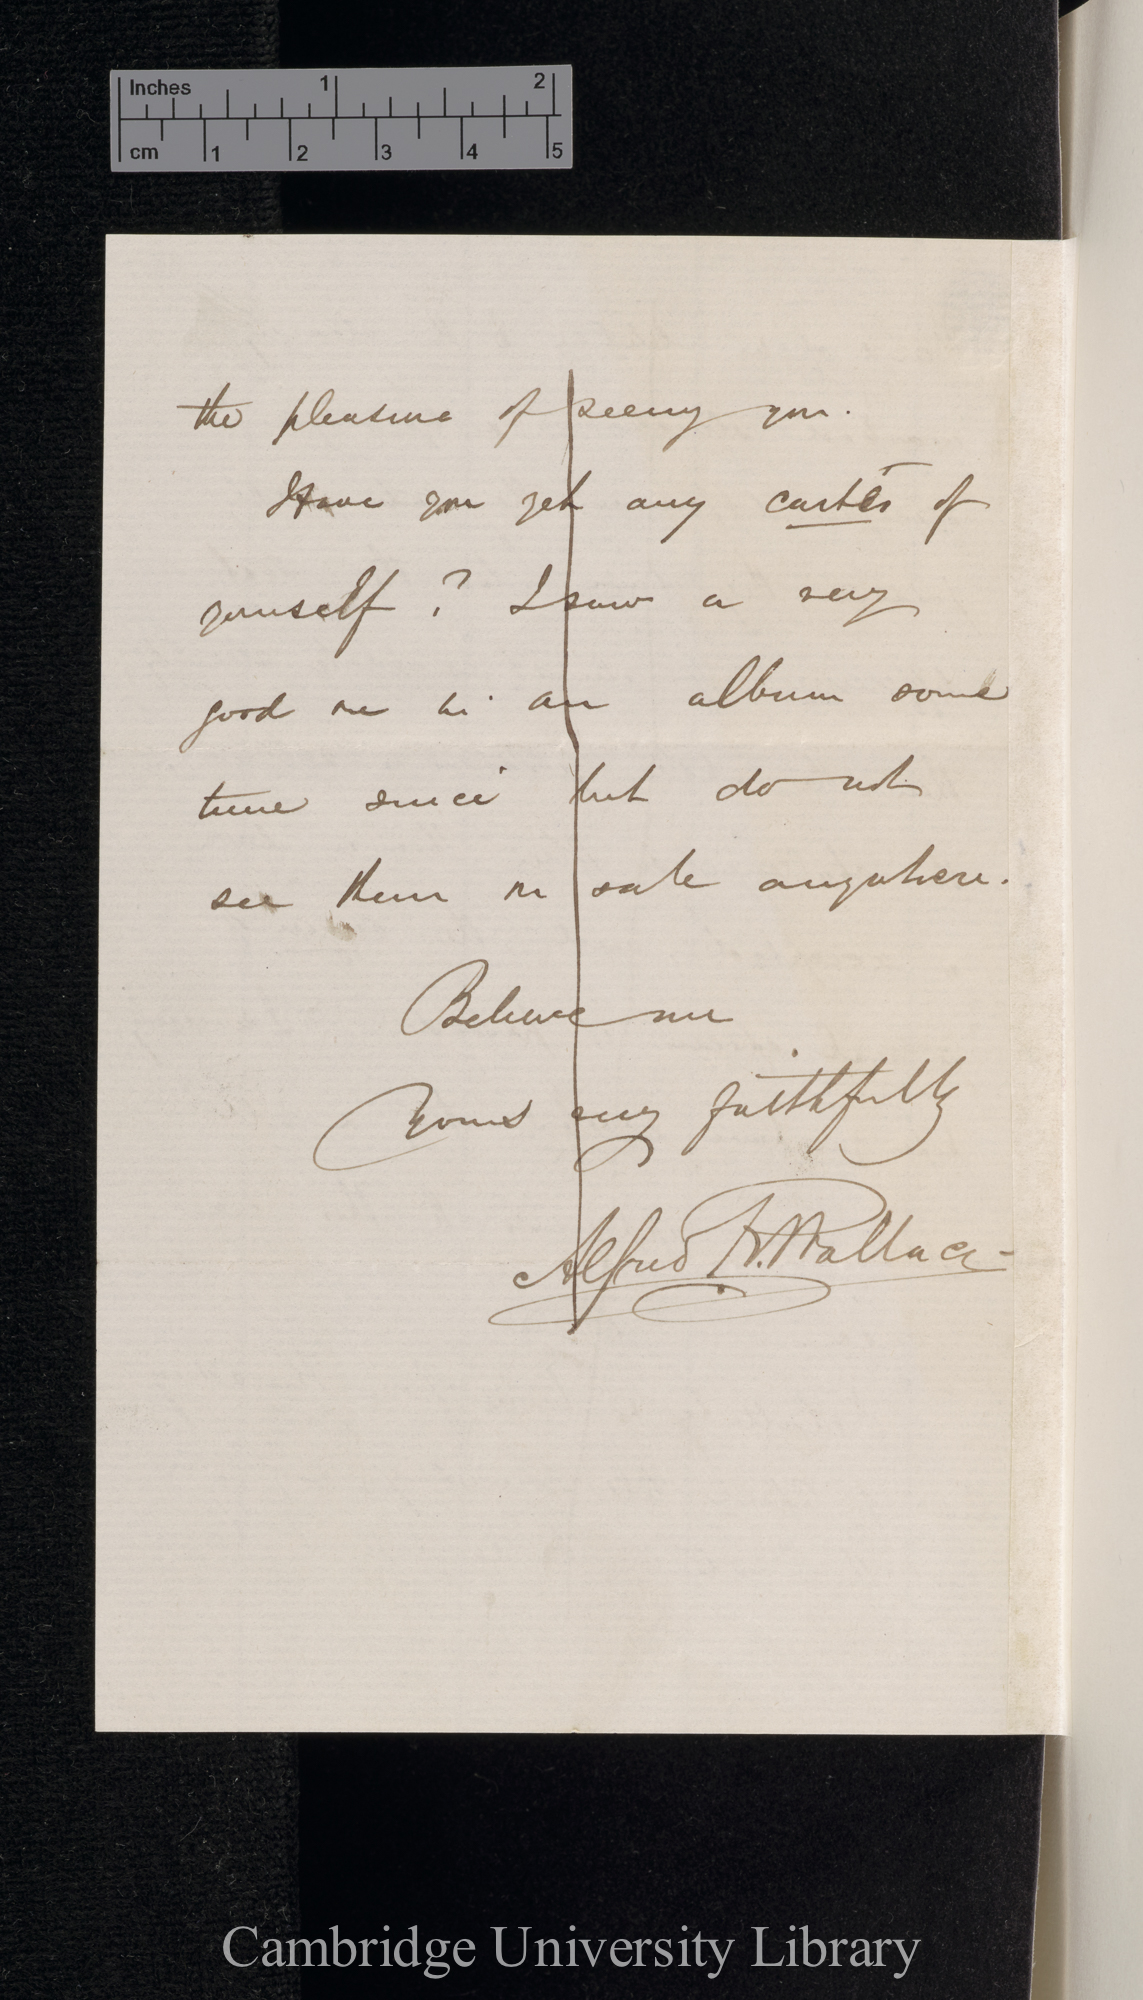 Inches 1 2
cm 1 2 3 4 5
the pleasure of seeing you.
Have you yet any cartes of
yourself? I saw a very
good one in an album some
time since but do not
see them on sale anywhere.
Believe me
Yours very faithfully
Alfred R. Wallace
Cambridge University Library